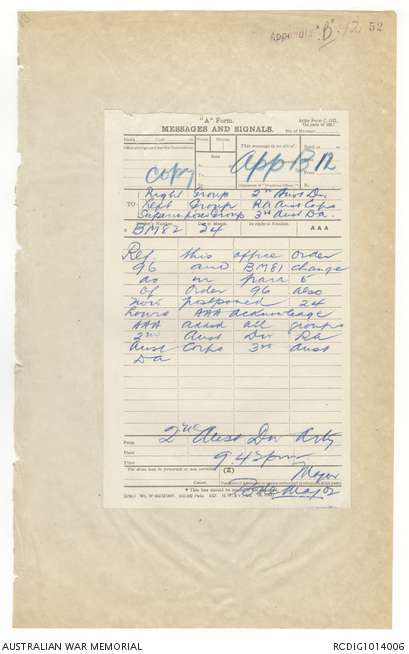 Appendix "B" 12. 52
"A" Form.
MESSAGES AND SIGNALS.
No. of Message
Copy App B 12
Right Group 2nd Aust Div
TO Left Group RA Aust Corps
Superimposed Group 3rd Aust Da.
BM82 24 AAA
Ref. this office order
96 and BM81 change
as in para 5
of order 96 also
now postponed 24
hours AAA acknowledge
AAA added all groups
2nd Aust Div RA
Aust Corps 3rd Aust
Da
From 2nd Aust Div Arty.
Place
Time 9.42pm
(Z)
Major
AUSTRALIAN WAR MEMORIAL
RCDIG1014006